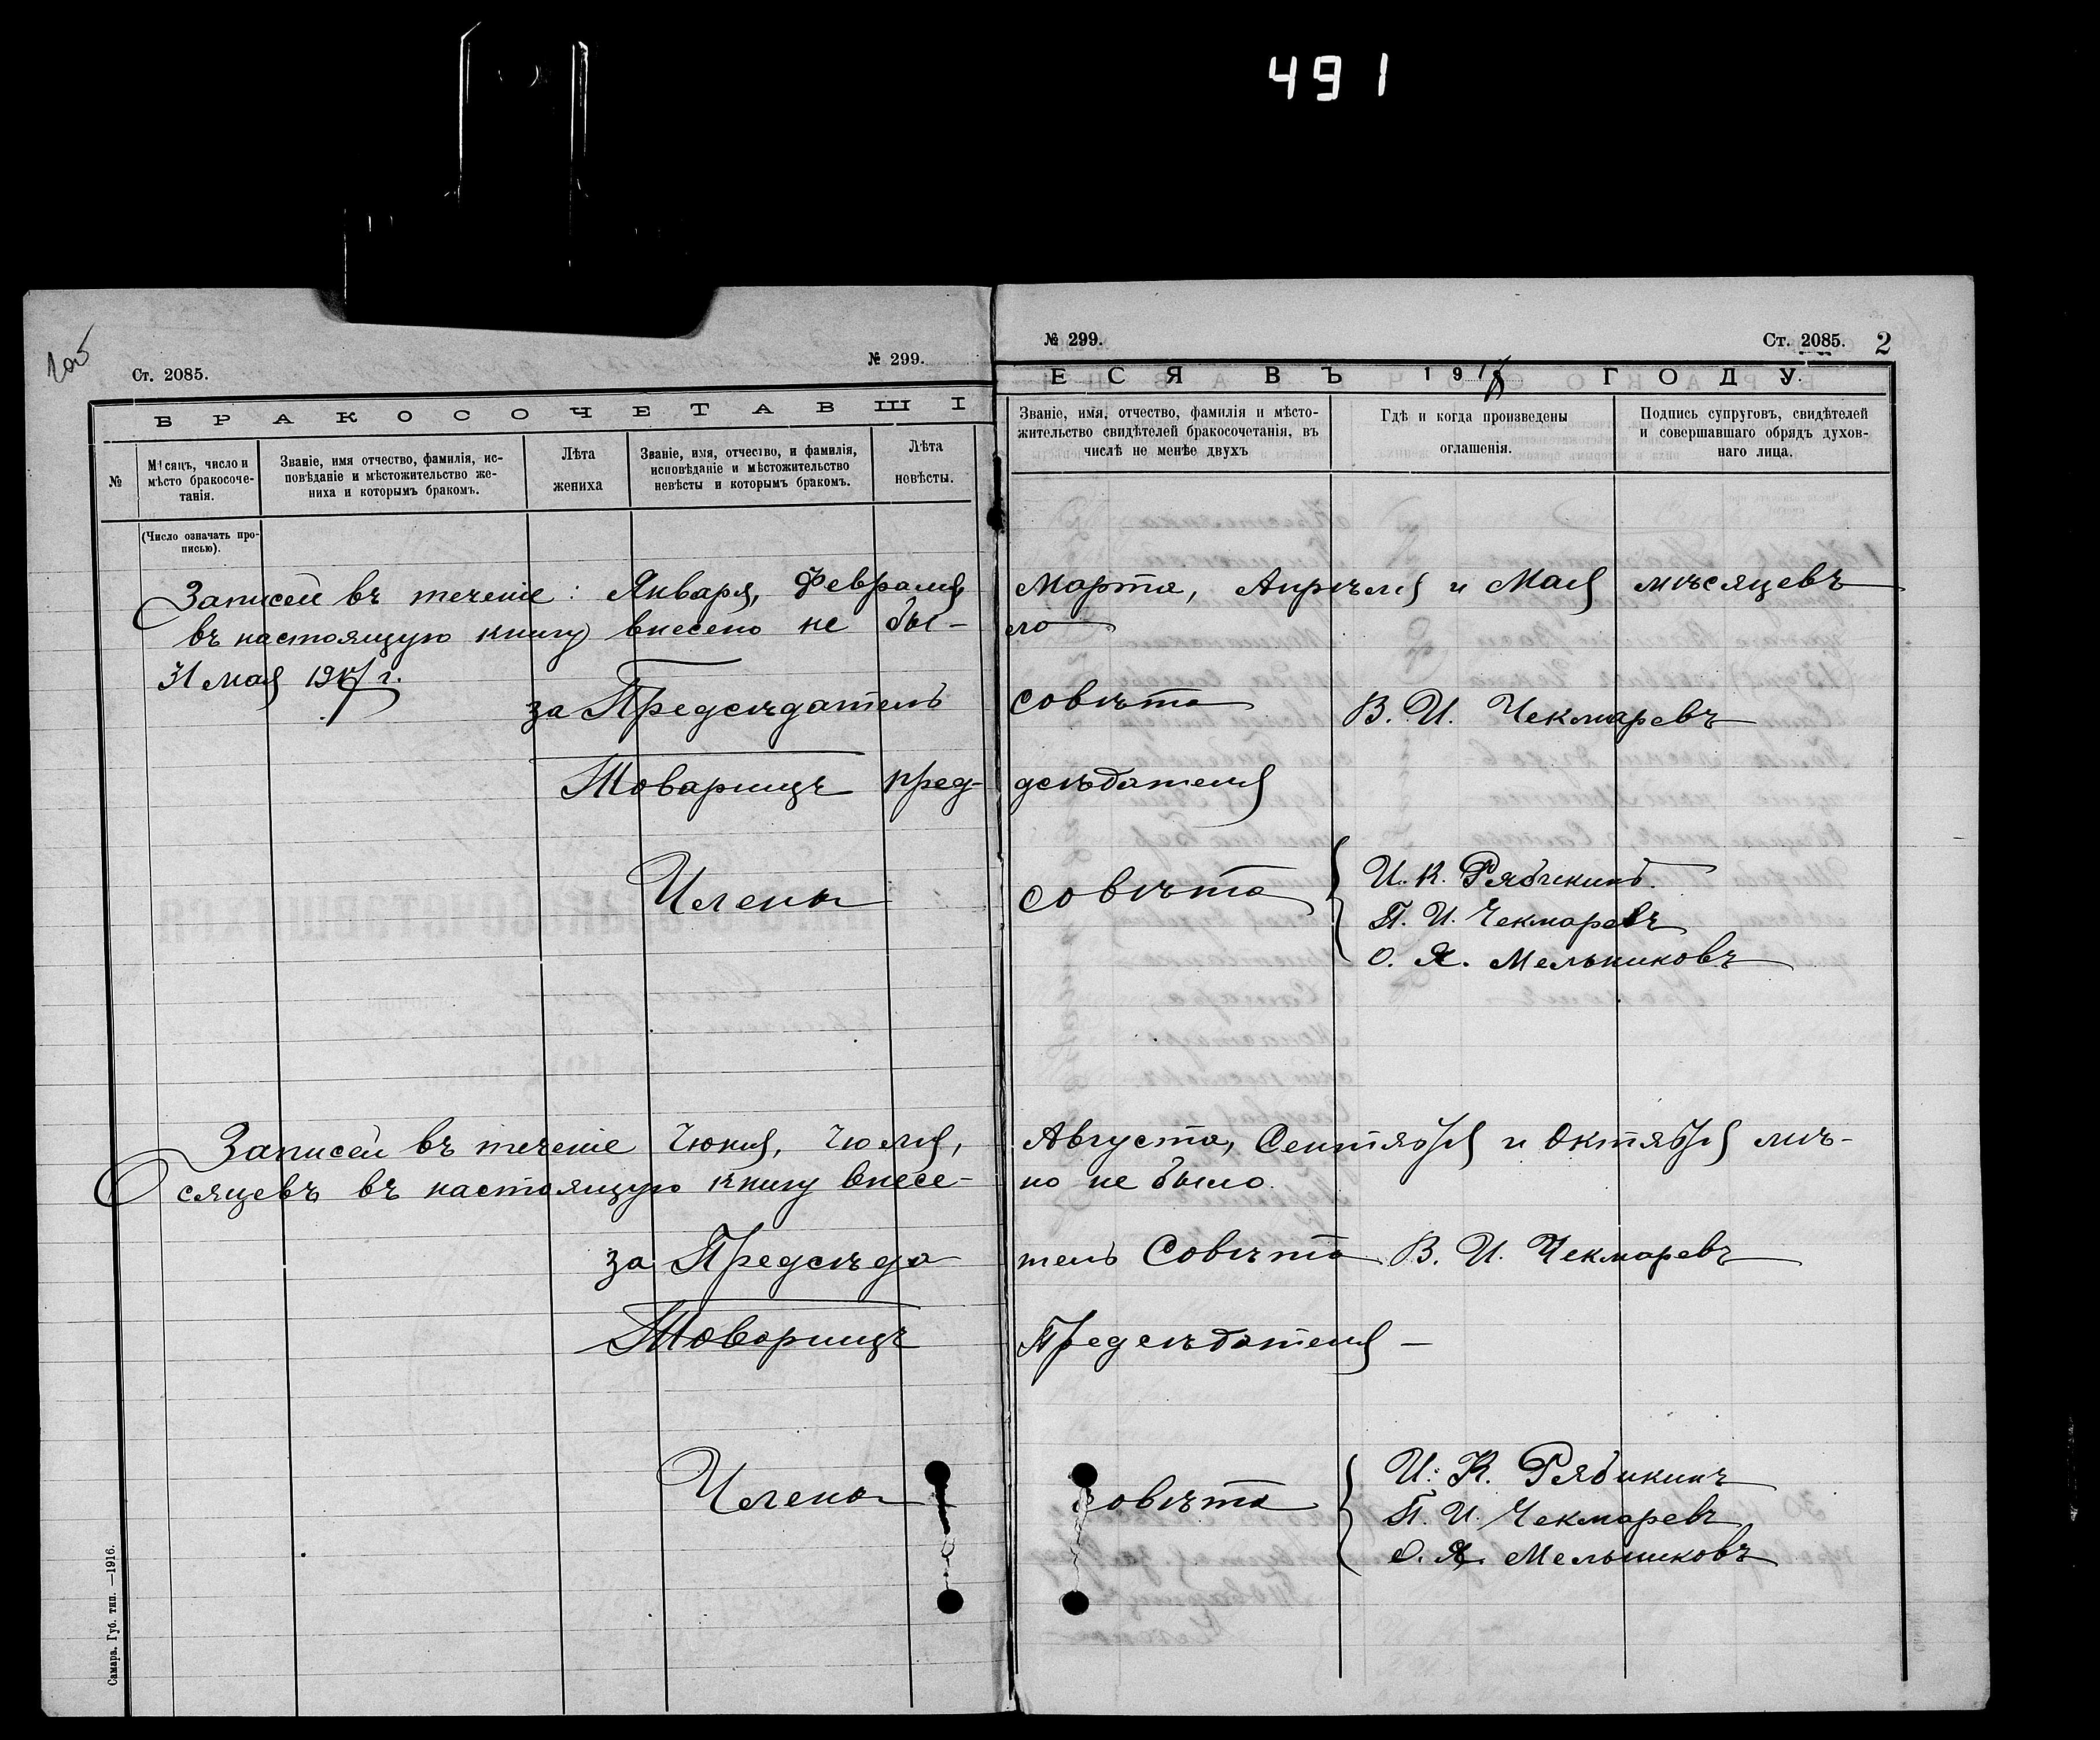 491
Ст. 2085.
№ 299.
БРАКОСОЧЕТАВШІ
№
Мѣсяцъ, число и
мѣсто бракосоче-
танія.
(Число означать про-
писью).
Званіе, имя отчество, фамилія, ис-
повѣданіе и мѣстожительство же-
ниха и которымъ бракомъ.
Лѣта
жениха
Званіе, имя, отчество, и фамилія,
исповѣданіе и мѣстожительство
невѣсты и которымъ бракомъ.
Лѣта
невѣсты.
№ 299.
Ст. 2085. 2
ЕСЯ ВЪ 191 ГОДУ.
Званіе, имя, отчество, фамилія и мѣсто-
жительство свидѣтелей бракосочетанія, въ
числѣ не менѣе двухъ
Гдѣ и когда произведены
оглашенія.
Подпись супруговъ, свидѣтелей
и совершавшаго обрядъ духов-
наго лица.
Записей въ теченіе: Января, Февраля, Марта, Апрѣля и Мая мѣсяцевъ
въ настоящую книгу внесено не бы- ло
31 мая г.
за Предсѣдатель совѣта В. И. Чекмаревъ
Товарищъ пред- дсѣдателя
Члены совѣта
И. К. Рябикинъ.
П. И. Чекмаревъ
О. Я. Мельниковъ
Записей въ теченіе Іюня, Іюля, Августа, Сентября и Октября мѣ-
сяцевъ въ настоящую книгу внесе- но не было.
за Предсѣда тель Совѣта В. И. Чекмаревъ
Товарищъ Предсѣдателя —
Члены совѣта
И. К. Рябикинъ
П. И. Чекмаревъ
О. Я. Мельниковъ
Самара. Губ. тип. —1916.